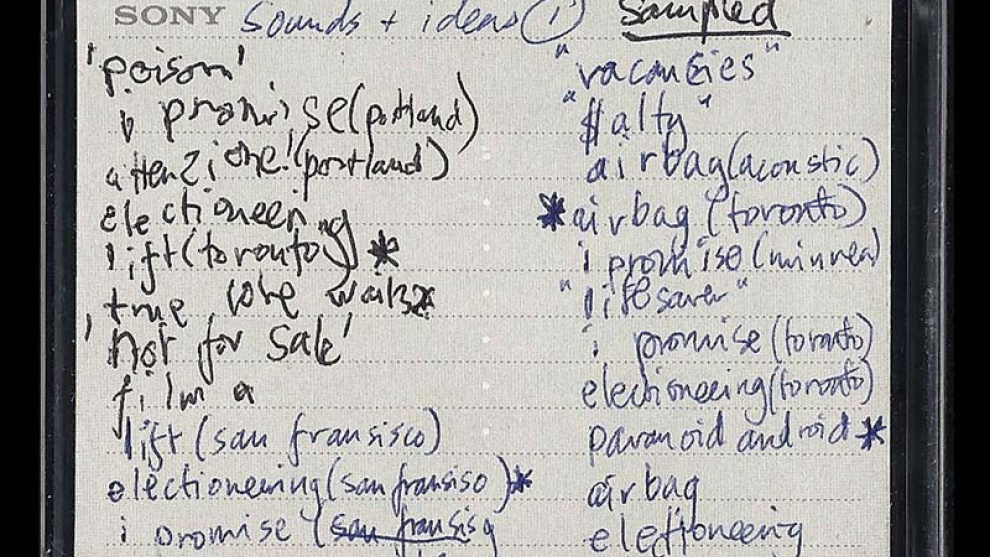 SONY sounds + ideas ① sampled
'poison'
i promise (portland)
attenzione! (portland)
electioneering
lift (toronto) *
true love waits
'not for sale'
film a
lift (san fransisco)
electioneering (san fransiso) *
i promise (san fransis
"vacancies"
"$alty"
airbag (acoustic)
* airbag (toronto)
i promise (minnea)
"lifesaver"
i promise (toronto)
electioneering (toronto)
paranoid android *
airbag
electioneering